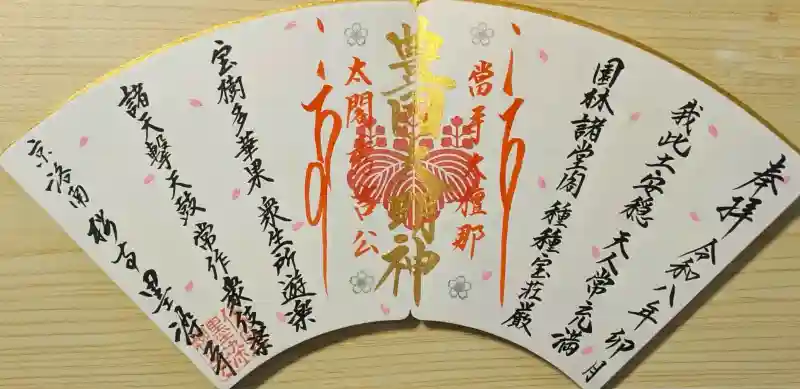 奉拝 令和八年卯月
我此土安穏 天人常充満
園林諸堂閣 種種宝荘厳
當寺大檀那
豊国大明神
太閤秀吉公
宝樹多華果 衆生所遊楽
諸天撃天鼓 常作衆伎楽
京洛南 墨染寺